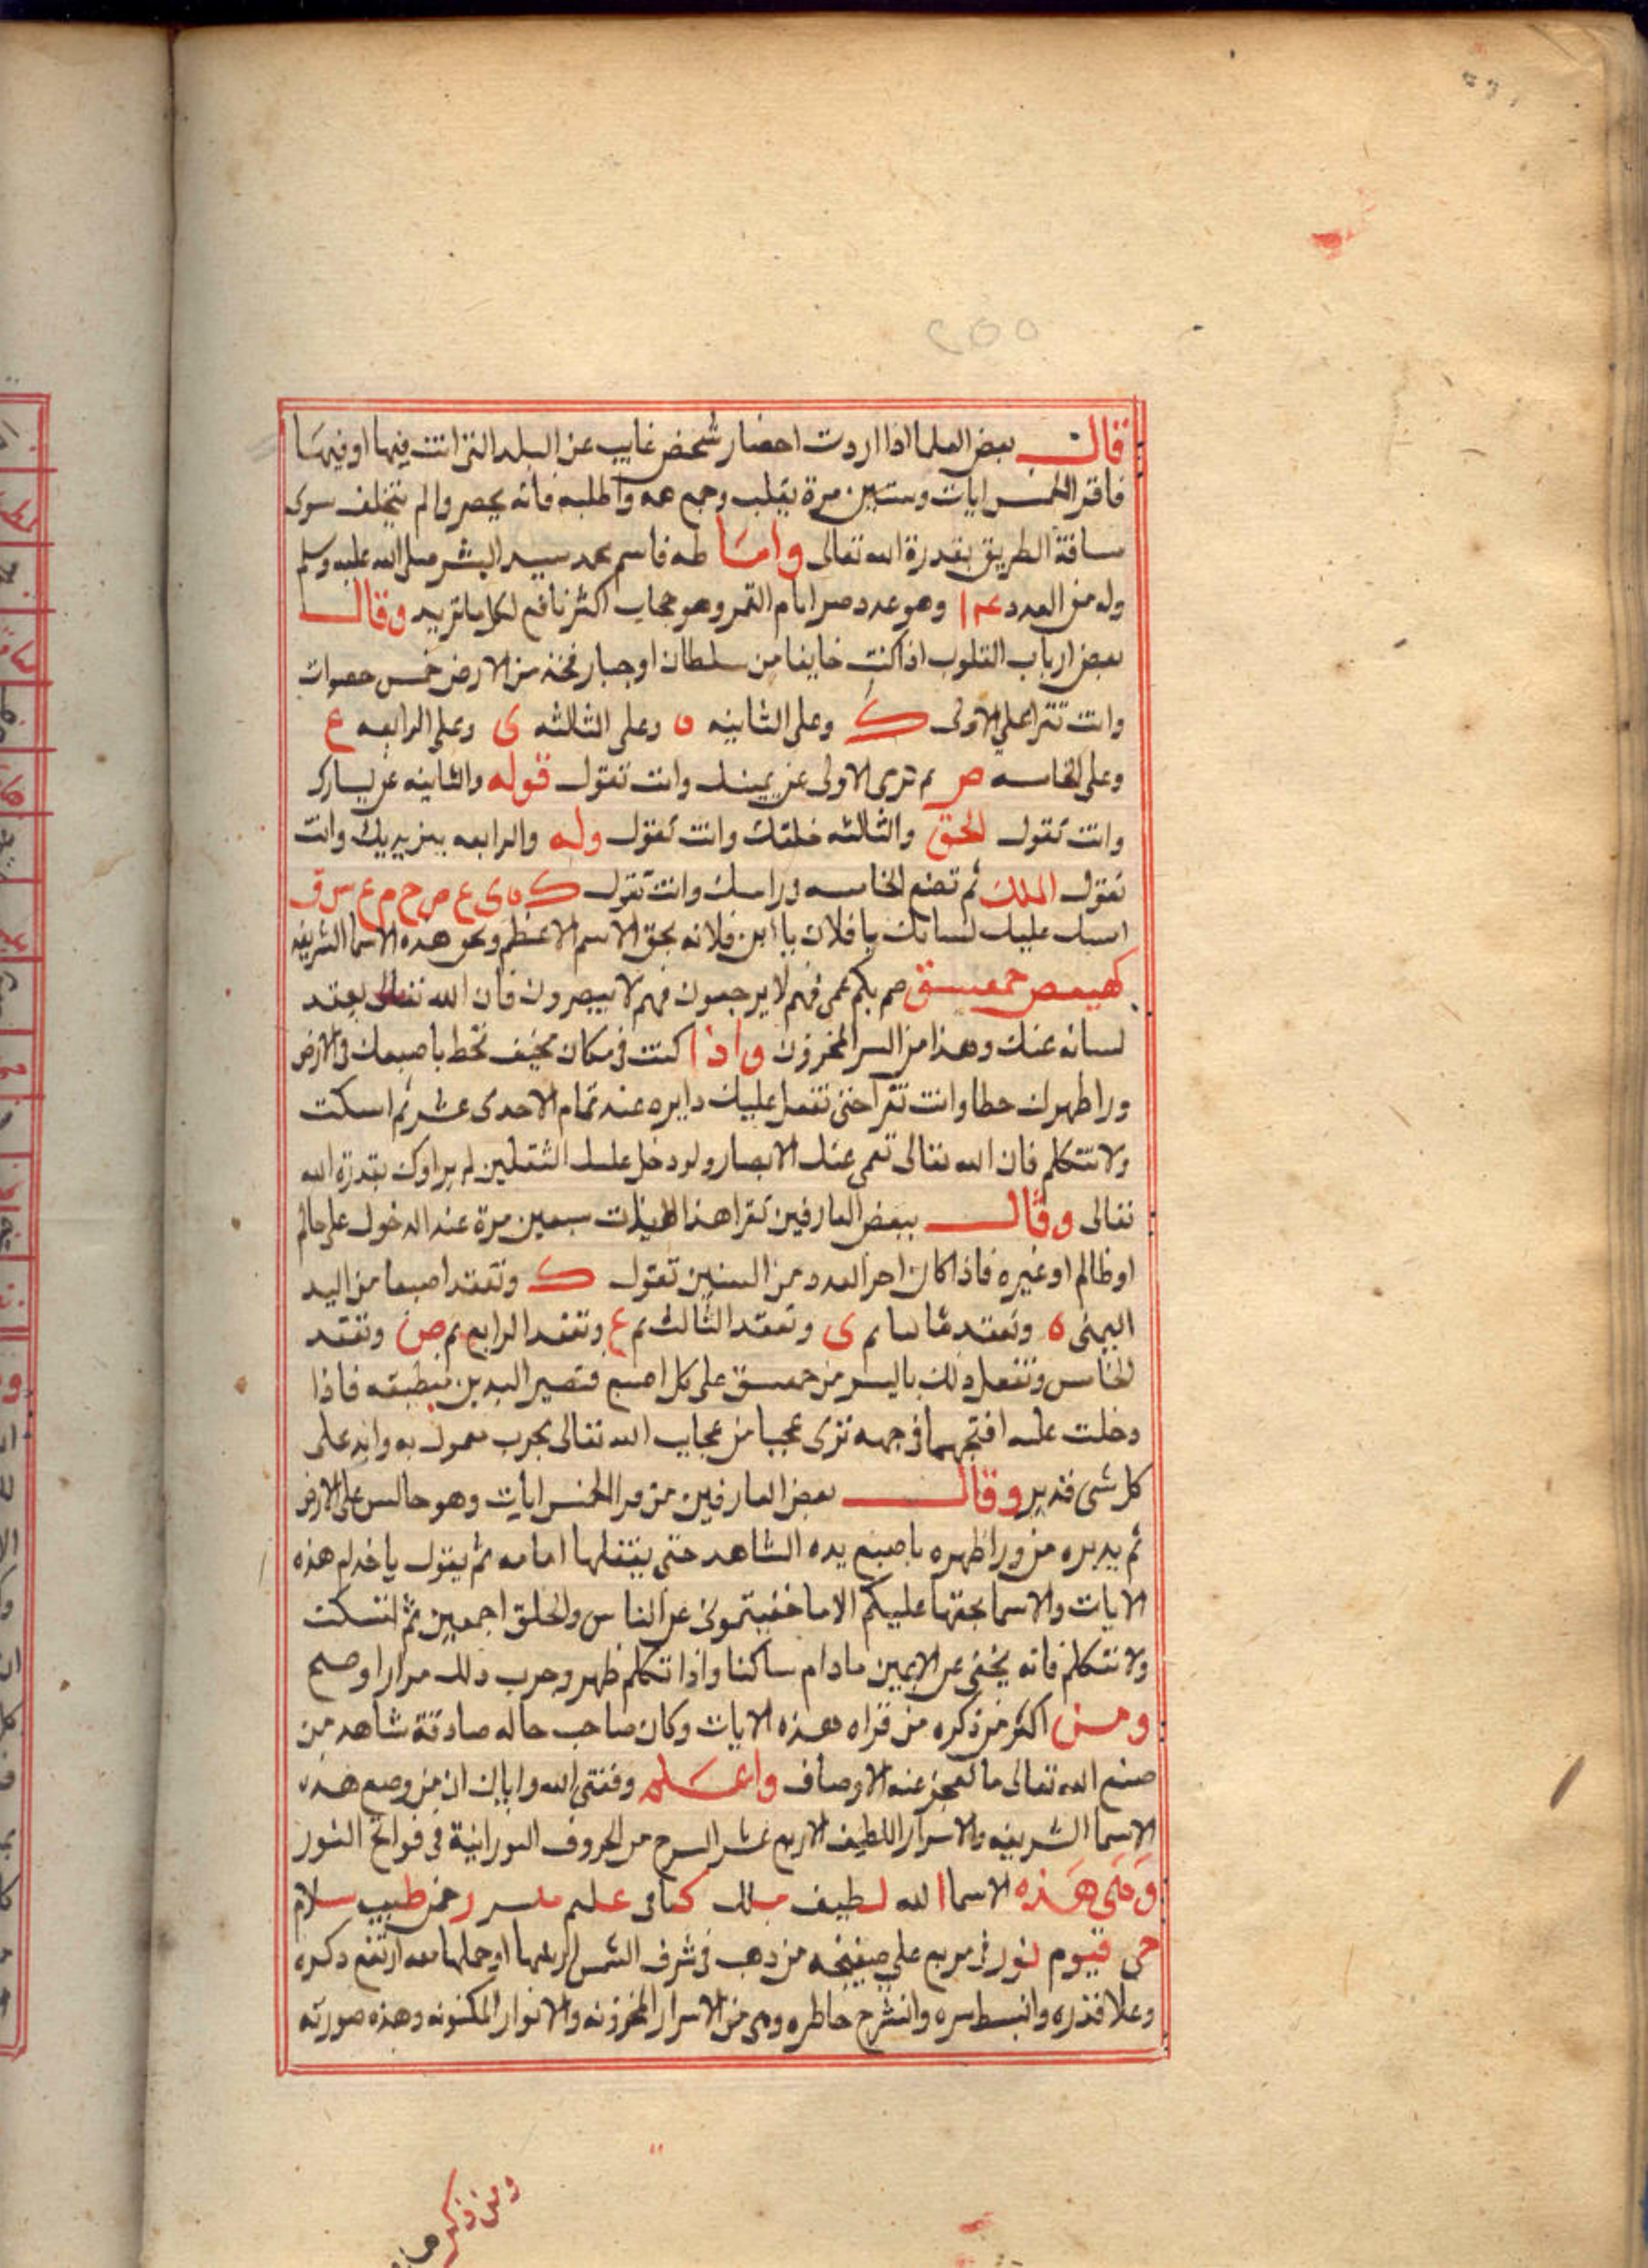 قال بعض العلما اذا اردت احضار شخص غايب عن البلد التى انت فيها او فيها
فاقرا الخمس ايات وستين مرة بقلب وجمع همه واطلبه فانه يحضر والم يتخلف سوى
مسافة الطريق بقدرة الله تعالى واما طه فاسم محمد سيد البشر صلى الله عليه وسلم
وله من العدد ١٤ وهو عدد ايام القمر وهو حجاب اكثر نافع لكل ما تريد وقال
بعض ارباب القلوب اذا كنت خايفا من سلطان او جبار فخذ من الارض خمس حصوات
وانت تقرا على الاولى ك وعلى الثانيه ه وعلى الثالثه ى وعلى الرابعه ع
وعلى الخامسه ص ثم ترمى الاولى عن يمينك وانت تقول قوله والثانيه عن يسارك
وانت تقول الحق والثالثه خلفك وانت تقول وله والرابعه بين يديك وانت
تقول الملك ثم تضع الخامسه فى راسك وانت تقول ك ه ى ع ص ح م ع س ق
امسك عليك لسانك يا فلان يا ابن فلانه بحق الاسم الاعظم وبحق هذه الاسما الشريفه
كهيعص حمعسق صم بكم عمى فهم لا يرجعون فهم لا يبصرون فان الله تعالى يعقد
لسانه عنك وهذا من السر المخزون واذا كنت فى مكان مخيف تخط باصبعك فى الارض
ورا ظهرك خطا وانت تقرا حتى تفعل عليك دايره عند تمام الاحدى عشر ثم اسكت
ولا تتكلم فان الله تعالى تعمى عنك الابصار ولو دخل عليك الثقلين لم يراوك بقدرة الله
تعالى وقال بعض العارفين تقرا هذا الايات سبعين مرة عند الدخول على حاكم
او ظالم او غيره فاذا كان اخر العدد من السبعين تقول ك وتعقد اصبعا من اليد
اليمنى ه وتعقد ثانيا ثم ى وتعقد الثالث ثم ع وتعقد الرابع ثم ص وتعقد
الخامس وتفعل ذلك باليسر من حمعسق على كل اصبع فتصير اليدين منطبقه فاذا
دخلت عليه افتحهما فى وجهه ترى عجبا من عجايب الله تعالى مجرب معمول به وانه على
كل شى قدير وقال بعض العارفين من قرا الخمس ايات وهو جالس على الارض
ثم يديره من ورا ظهره باصبع يده الشاهد حتى ينقلها امامه ثم يقول يا خدام هذه
الايات والاسما بحقها عليكم الا ما خفيتمونى عن الناس والخلق اجمعين ثم لتسكت
ولا تتكلم فانه يخفى عن الاعين مادام ساكنا واذا تكلم ظهر وجرب ذلك مرارا وصح
ومن اكثر من ذكره من قراه هذه الايات وكان صاحب حاله صادقة شاهد من
صنع الله تعالى ما تعجز عنه الاوصاف واعلم وفقنى الله واياك ان من وضع هذه
الاسما الشريفه والاسرار اللطيفه الاربع عشر من الحروف النورانية فى فواتح السور
وهى هذه الاسما الله لطيف ملك كافى عليم رحمن طيب سلام
حى قيوم نور فى مربع على صفيحه من ذهب فى شرف الشمس او حملها معه ارتفع ذكره
وعلا قدره وانبسط سره وانشرح خاطره وهى من الاسرار المخزونه والانوار المكنونه وهذه صورته
ومن ذكر